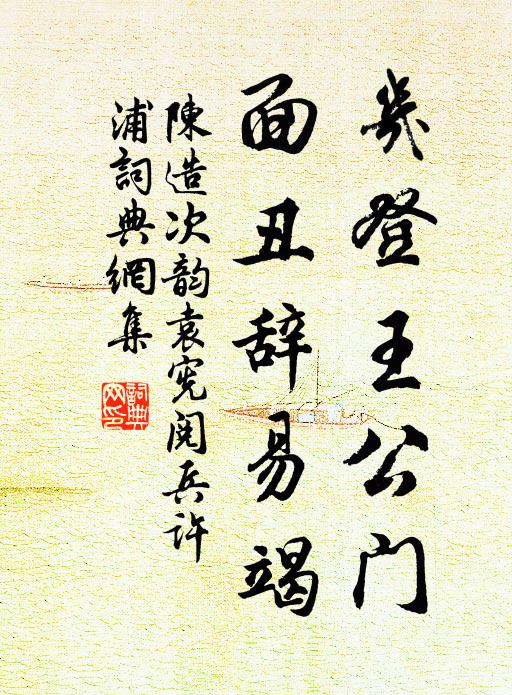 几登王公门
面丑辞易竭
陳造次韵袁宪阅兵許
浦詞典網集
詞典
网印